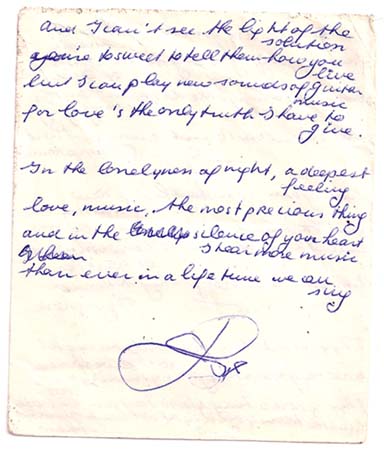 and I can't see the light of the
solution
you're to sweet to tell them how you
live
but I can play new sounds of guitar
music
for love's the only truth I have to
give.
In the lonelyness of night, a deepest
feeling
love, music, the most precious thing
and in the silence of your heart
I hear more music
than ever in a life time we can
sing